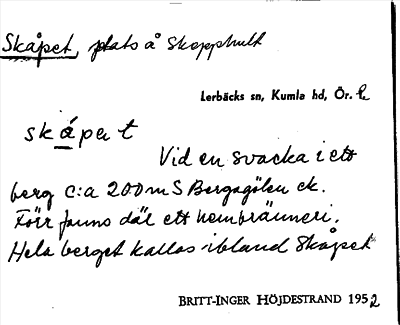 Skåpet, plats å Skopphult
Lerbäcks sn, Kumla hd, Ör. l.
skåpet
Vid en svacka i ett
berg c:a 200 m S Bergagölen ek.
Förr fanns där ett hembränneri.
Hela berget kallas ibland Skåpet
BRITT-INGER HÖJDESTRAND 1952